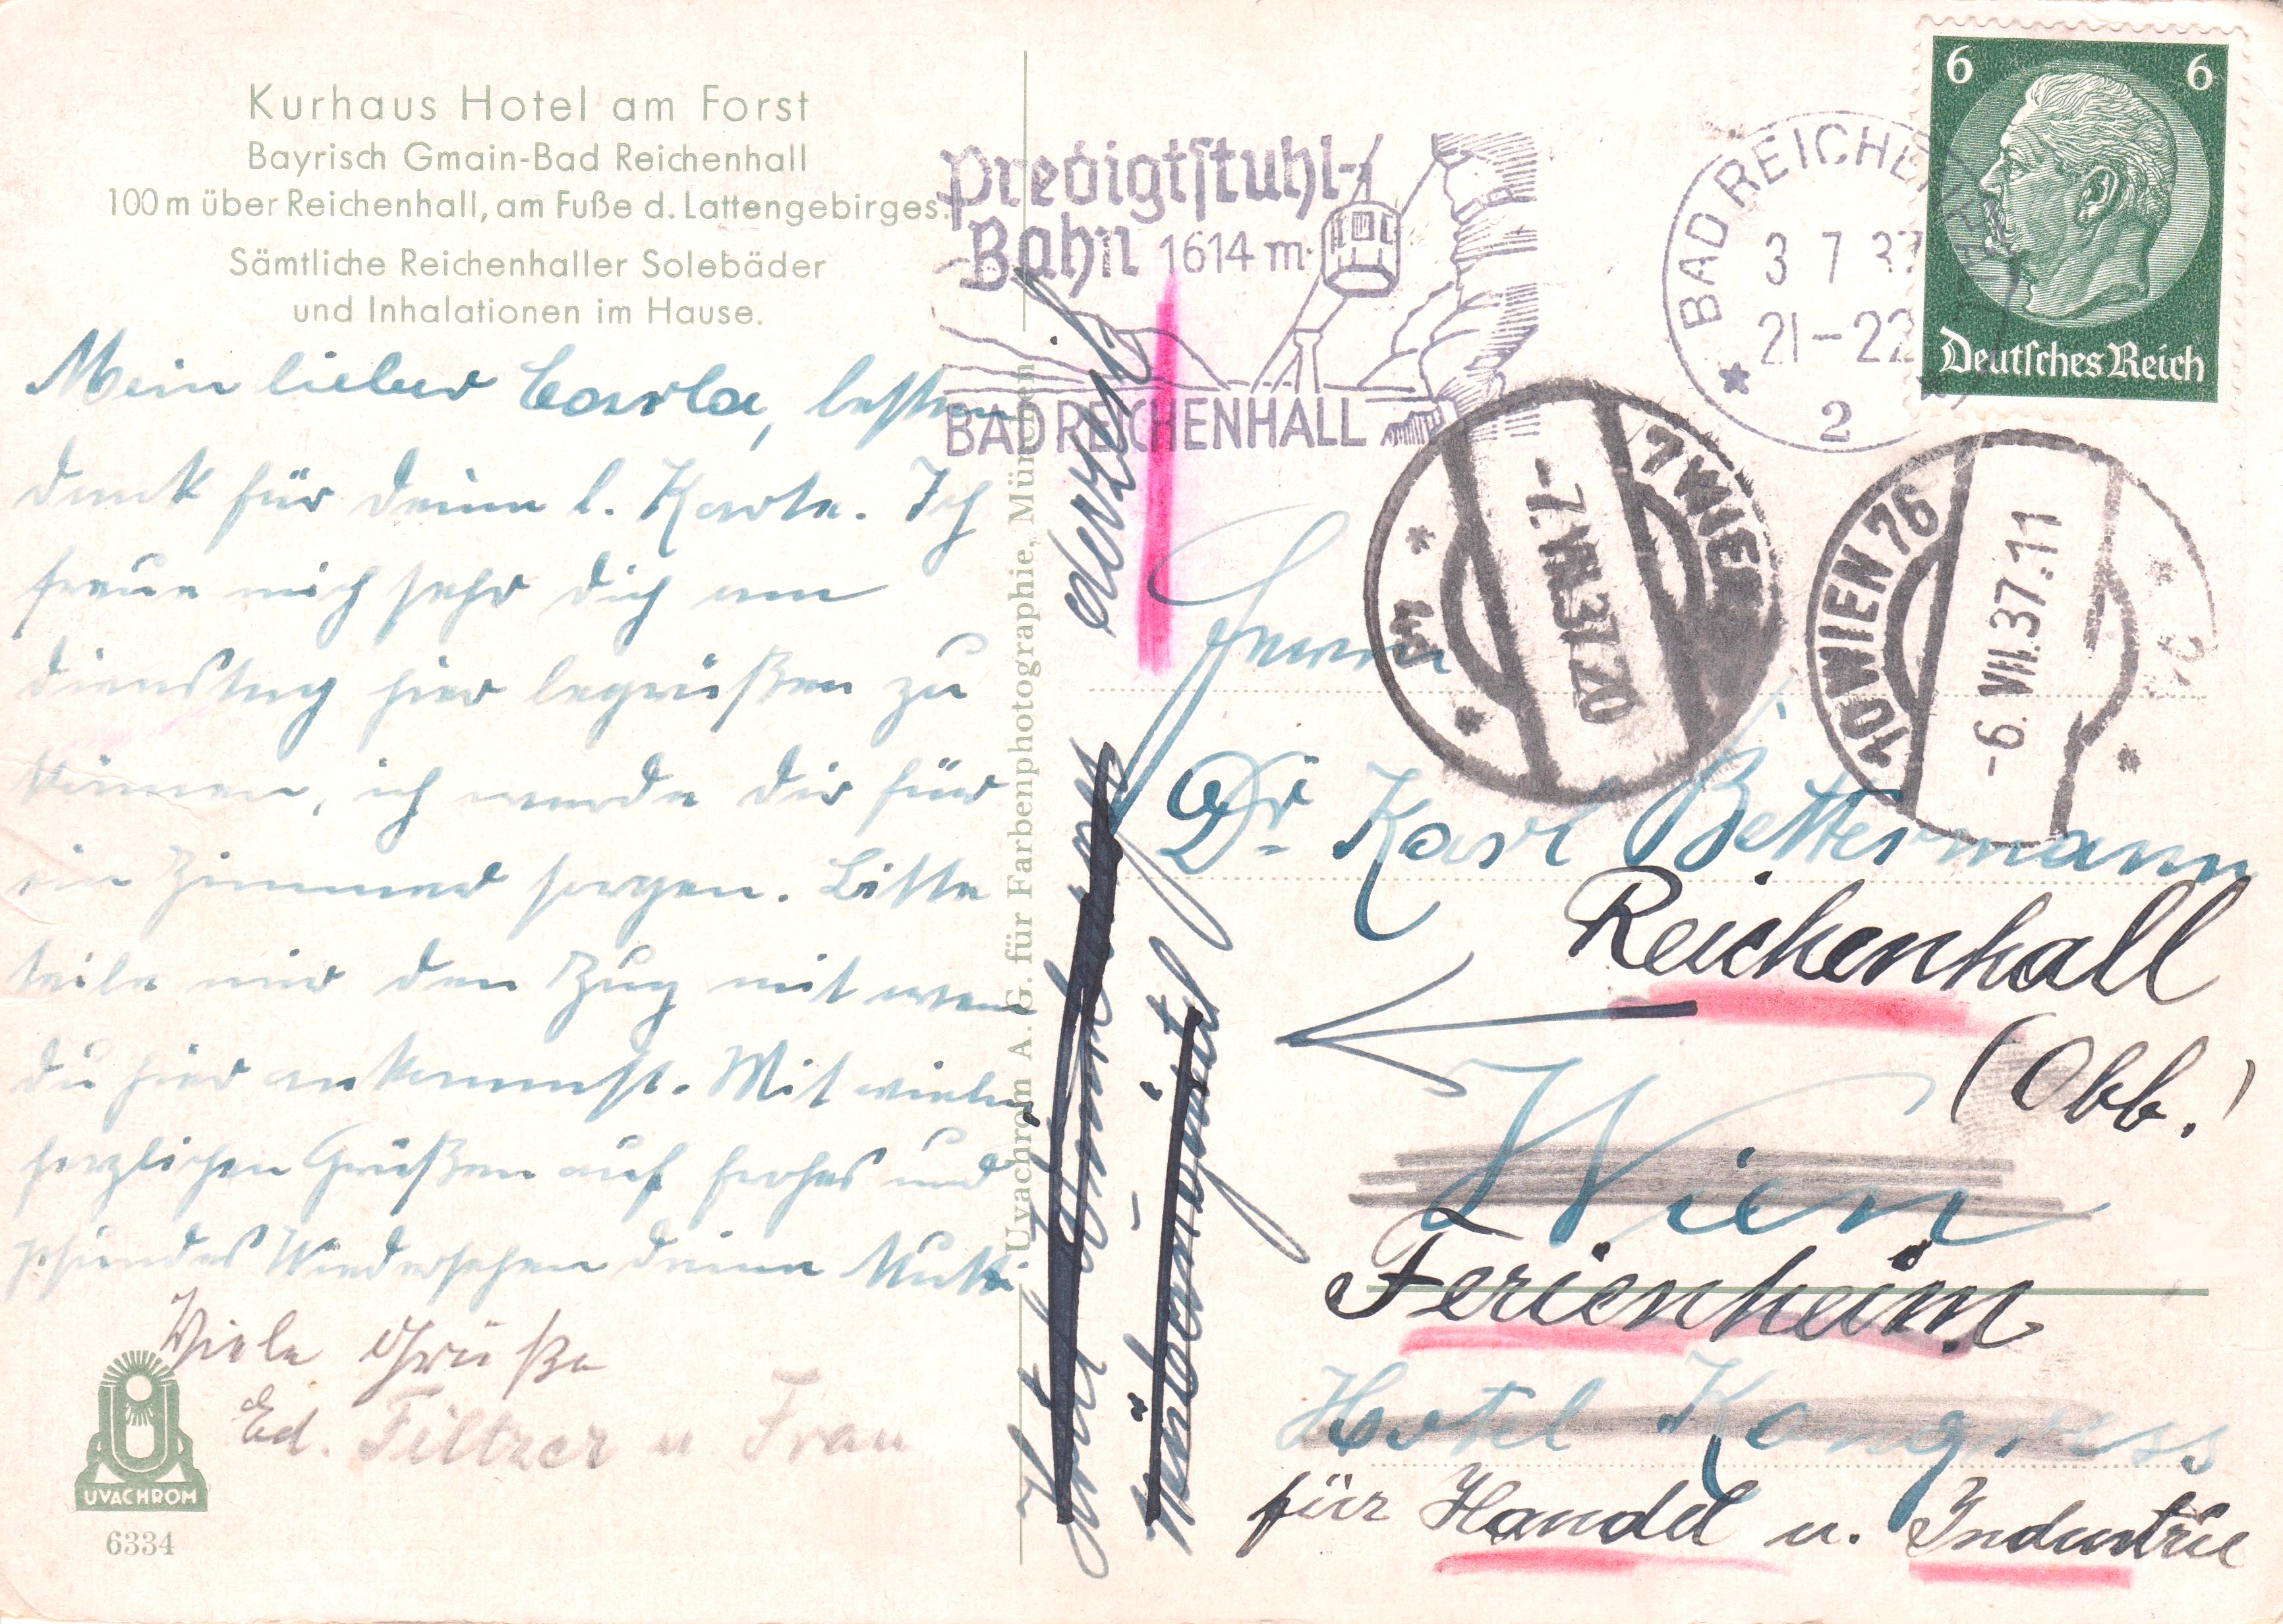 Kurhaus Hotel am Forst
Bayrisch Gmain-Bad Reichenhall
100 m über Reichenhall, am Fuße d. Lattengebirges.
Sämtliche Reichenhaller Solebäder
und Inhalationen im Hause.
Mein lieber Carla, besten
Dank für deine l. Karte. Ich
freue mich sehr dich am
Dienstag hier begrüßen zu
können, ich werde dir für
ein Zimmer sorgen. Bitte
teile mir den Zug mit wenn
du hier ankommst. Mit vielen
herzlichen Grüßen auf frohes und
Wiedersehen deine
Viele Grüße
Ed. Filtzer u Frau
UVACHROM
6334
Uvachrom A. G. für Farbenphotographie, München
Predigtstuhl-
Bahn 1614 m
BAD REICHENHALL
BAD REICHENHALL
3 7 37
21-22
2
6 6
Deutsches Reich
7 WIEN
-7.VII.37.20
10 WIEN 76
-6.VII.37.11
derzeit
Herrn
Dr. Karl Bettermann
Reichenhall
(Obb.)
Wien
Ferienheim
Hotel Kongress
für Handel u. Industrie